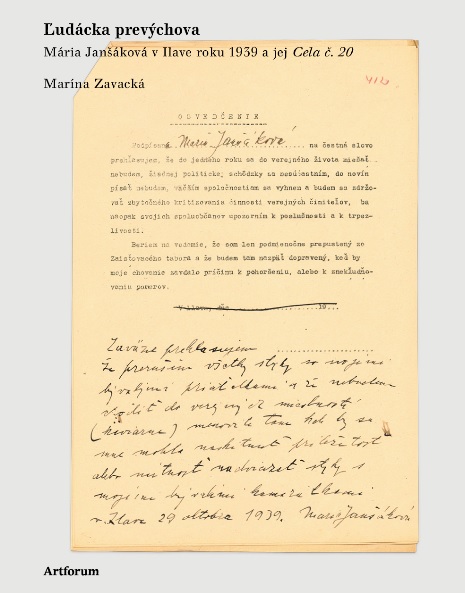 Ľudácka prevýchova
Mária Janšáková v Ilave roku 1939 a jej Cela č. 20
Marína Zavacká
412
OSVEDČENIE
Podpísaná Mária Janšáková na čestné slovo
prehlasujem, že do jedného roku sa do verejného života miešať
nebudem, žiadnej politickej schôdzky sa nezúčastním, do novín
písať nebudem, väčším spoločnostiam sa vyhnem a budem sa zdržo-
vať zbytočného kritizovania činnosti verejných činiteľov, ba
naopak svojich spoluobčanov upozorním k poslušnosti a k trpez-
livosti.
Beriem na vedomie, že som len podmienečne prepustený zo
Zaisťovacieho tábora a že budem tam nazpäť dopravený, keď by
moje chovanie zavdalo príčinu k pohoršeniu, alebo k znekľudňo-
vaniu pomerov.
V Ilave, dňa 19
Zaväzne prehlasujem
že preruším všetky styky so svojimi
bývalými priateľkami a že nebudem
chodiť do verejných miestností
(kaviarne) menovite tam kde by sa
mne mohla naskytnúť príležitosť
alebo nútnosť nadviazať styky s
mojimi bývalými kamarátkami
v Ilave 29 októbra 1939. Mária Janšáková
Artforum